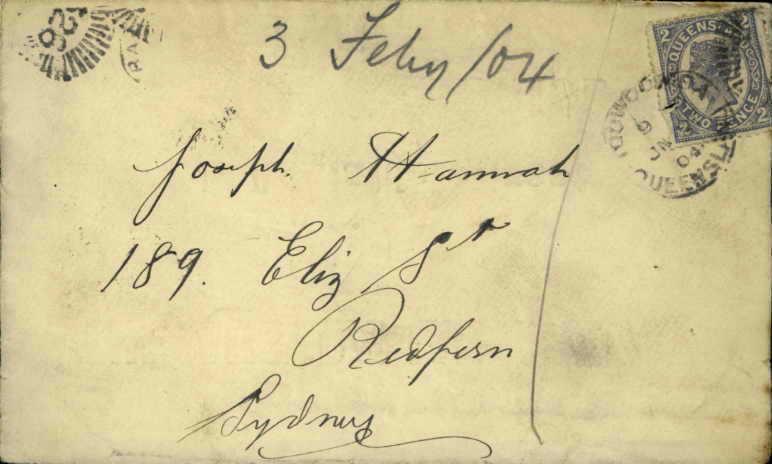 3 Feby/04
Joseph Hannah
189. Eliz St
Redfern
Sydney
2 QUEENSLAND 2
2 TWO PENCE 2
QUEENSLAND